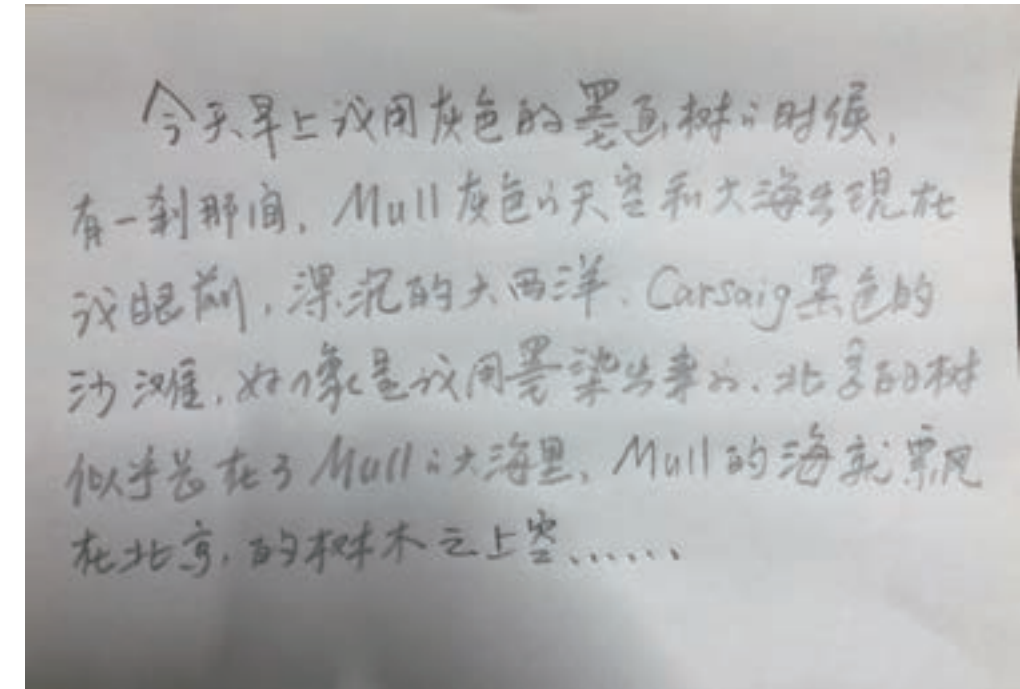 今天早上我用灰色的墨画树的时候,
有一刹那间, Mull 灰色的天空和大海出现在
我眼前, 深沉的大西洋、Carsaig黑色的
沙滩, 好像是我用墨染出来的、北京的树
似乎长在了Mull的大海里, Mull的海就飘
在北京的树木之上空......